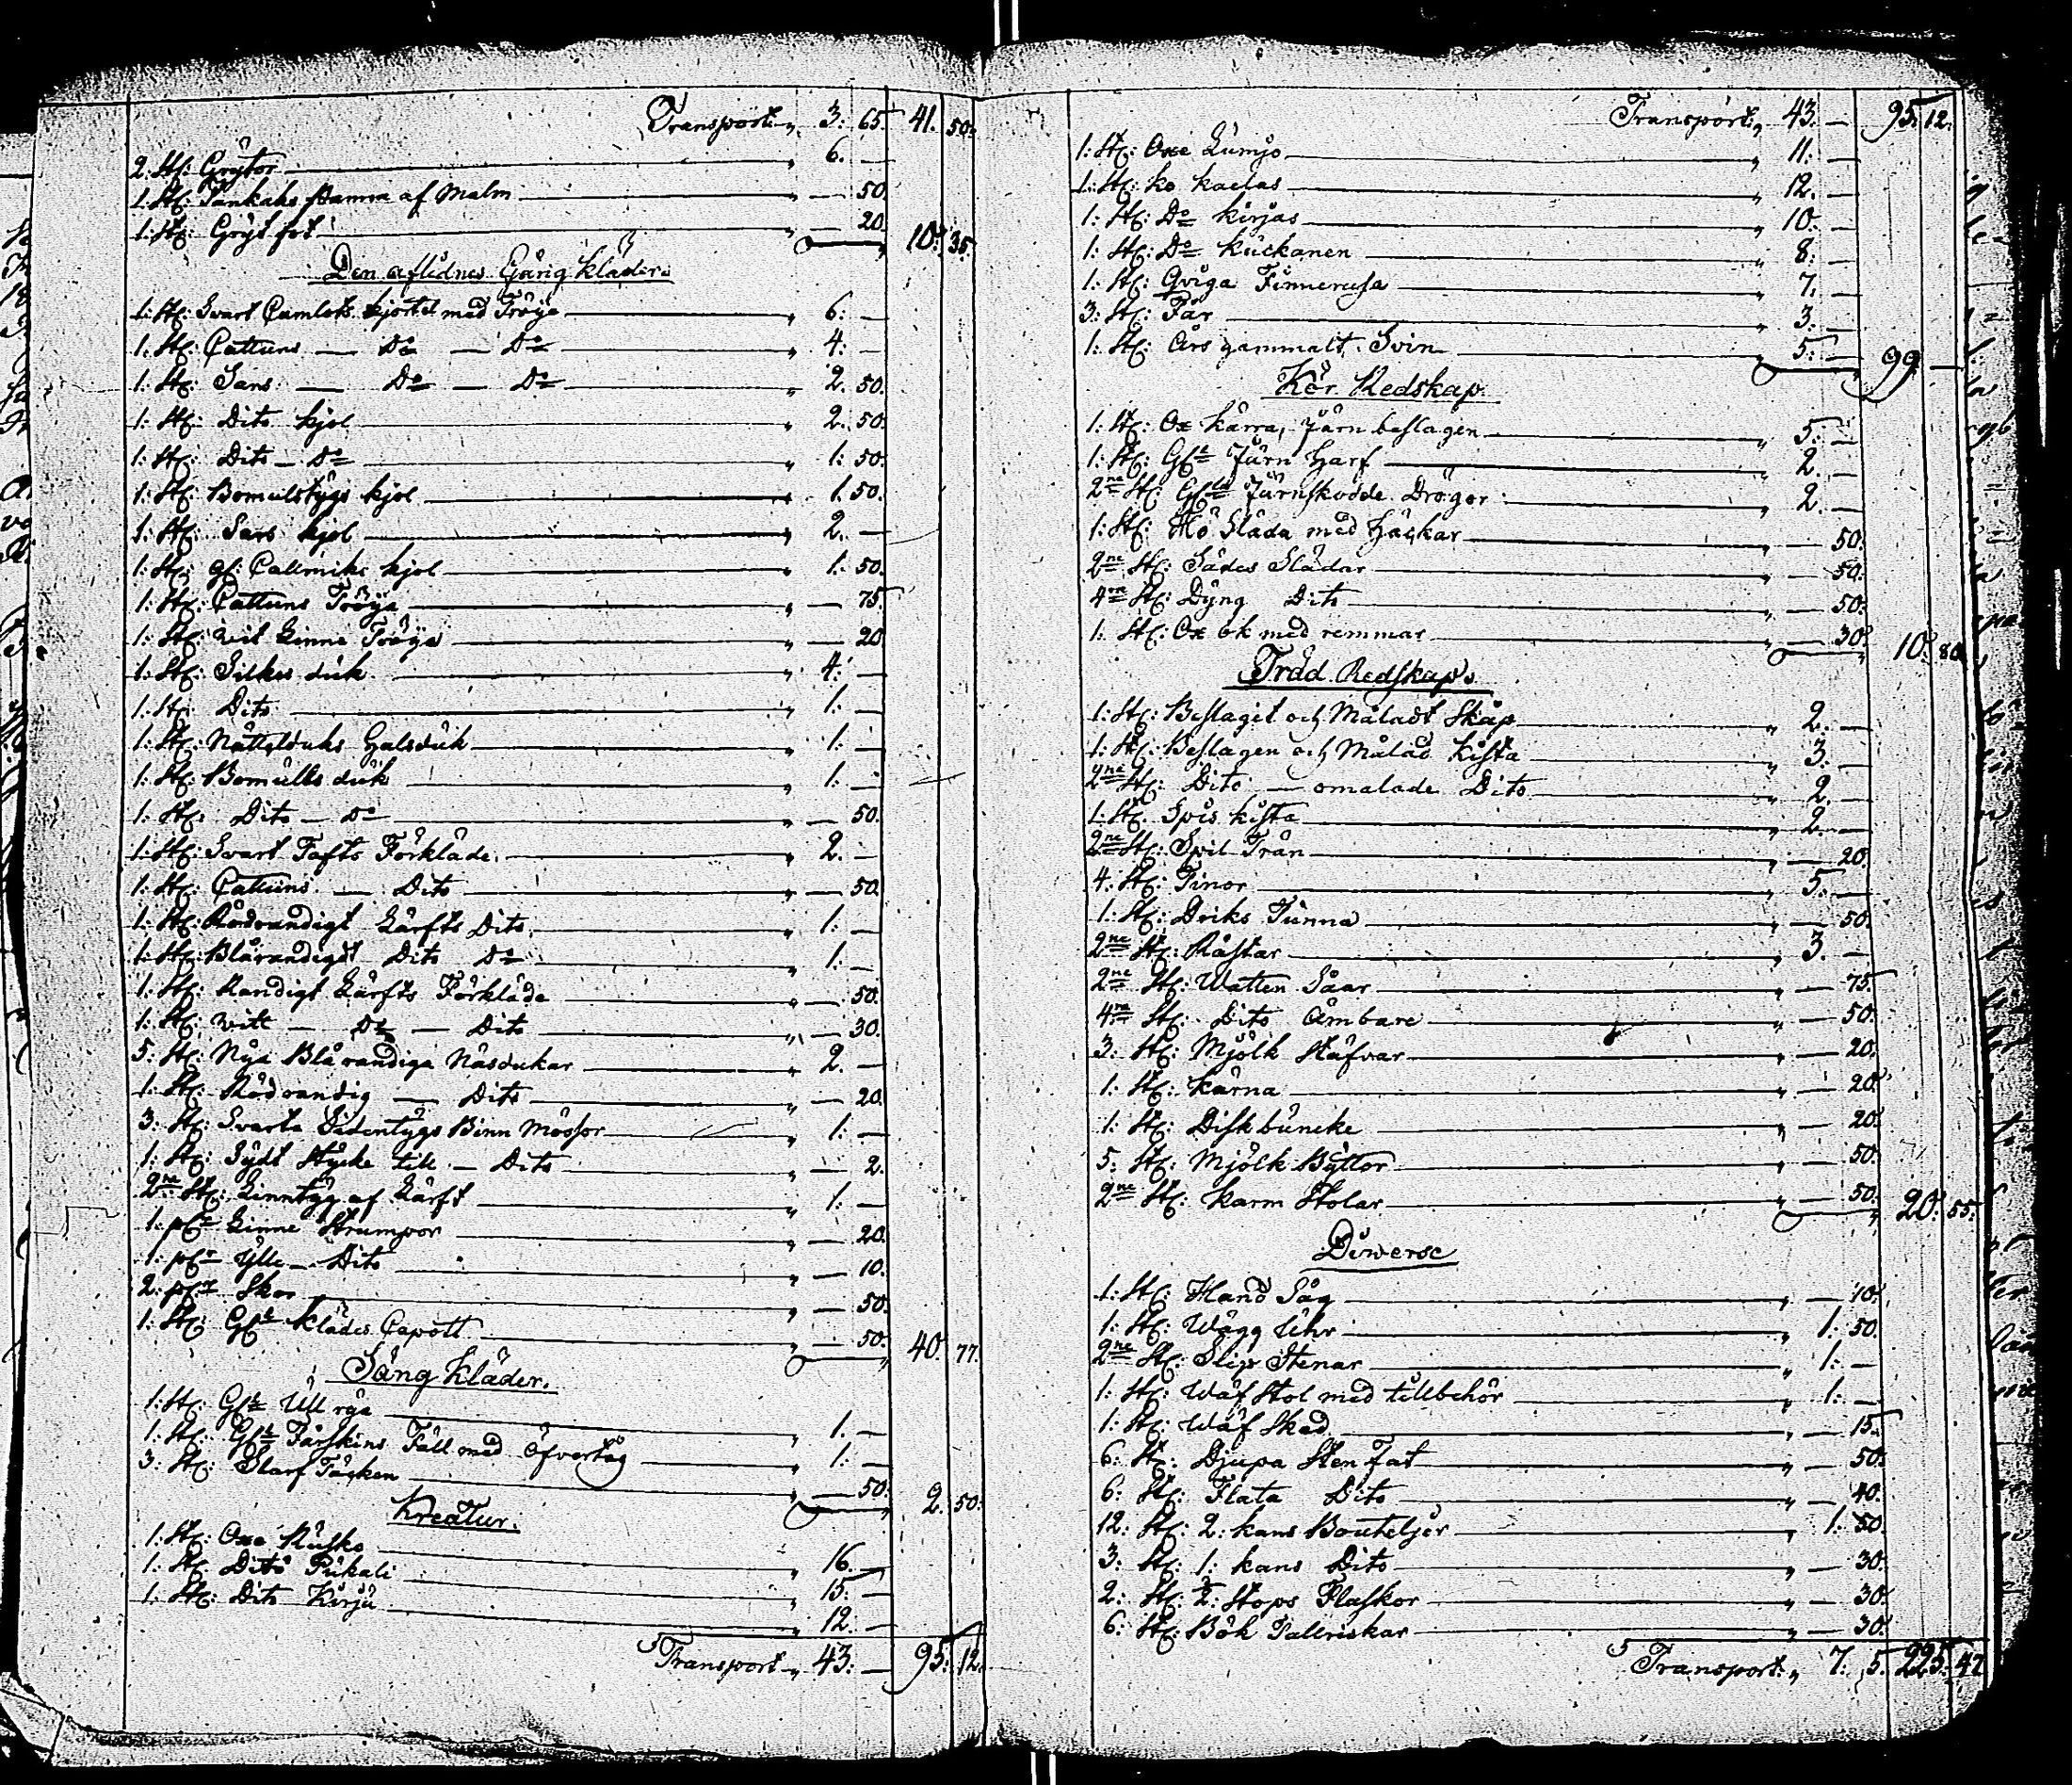 Transport „ 3: 65. 41. 50.
2. St: Grytor „ 6. —
1. St: Pankaks Panna af Malm „ — 50.
1. St: Gryt fot „ — 20. 10. 35.
Den aflidnes Gång kläder:
1: St: Svart Camlots kjortel med Tröya „ 6: —
1: St: Cattuns — Do — Do „ 4: —
1: St: Sars — Do — Do „ 2. 50.
1: St: Dito kjol „ 2. 50.
1: St: Dito — Do „ 1: 50.
1: St: Bomulstygs kjol „ 1. 50.
1: St: Sars kjol „ 2. —
1: St: gl: Callmiks kjol „ 1. 50.
1: St: Cattuns Tröya „ — 75.
1: St: wit Linne Tröya „ — 20
1: St: Silkes duk „ 4: —
1: St: Dito „ 1: —
1: St: Nättelduks Halsduk „ 1: —
1: St: Bomulls duk „ 1: —
1: St: Dito — Do „ — 50.
1: St: Svart Tafts Förkläde „ 2. —
1: St: Cattuns — Dito „ — 50.
1: St: Rödrandigt Lärfts Dito „ 1: —
1: St: Blårandigt Dito Do „ 1: —
1: St: Randigt Lärfts Förkläde „ — 50.
1: St: witt — Do — Dito „ — 30.
5: St: Nya Blårandiga Näsdukar „ 2. —
1: St: Rödrandig — Dito „ — 20.
3: St: Svarta Sidentygs Binn Mössor „ 1: —
1: St: Sydt Stycke till — Dito „ — 2.
2ne St: Linntyg af Lärft „ 1: —
1: pr Linne Strumpor „ — 20.
1: pr Ylle — Dito „ — 10.
2: pr Skor „ — 50.
1: St: Glt Klädes Capott „ — 50. 40. 77.
Säng Kläder.
1: St: Glt Ull rya „ 1. —
1: St: Glt Fårskins Fäll med Öfvertåg „ 1: —
3: St: Slarf Täcken „ — 50. 2. 50.
Kreatur.
1: St: Oxe Rusko „ 16. —
1: St: Dito Pukali „ 15. —
1: St: Dito Kirju „ 12. —
Transport „ 43: — 95: 12.
Transport „ 43. — 95. 12.
1: St: Oxe Lumjo „ 11. —
1: St: ko kaelas „ 12. —
1: St: Do kirjas „ 10. —
1: St: Do kuckanen „ 8: —
1: St: Qviga Finnerusa „ 7. —
3: St: Får „ 3. —
1: St: Års gammalt Svin „ 5: — 99 —
Kör Redskap.
1: St: Ox kärra, Järn beslagen „ 5: —
1: St: Glt Järn Harf „ 2. —
2ne St: Jürnskodde Drögor „ 2. —
1: St: Hö Släda med Häckar „ — 50.
2ne St: Sädes Slädar „ — 50.
4ra St: Dyng Dito „ — 50.
1: St: Ox ok med remmar „ — 30. 10. 80.
Träd Redskap.
1: St: Beslaget och Måladt Skåp „ 2. —
1: St: Beslagen och Målad Kista „ 3. —
2ne St: Dito — omalade Dito „ 2. —
1: St: Spis kista „ 2. —
2ne St: Spil Trän „ — 20.
4: St: Tinor „ 5: —
1: St: Driks Tunna „ — 50.
2ne St: Råstar „ 3. —
2ne St: Watten Såar „ — 75.
4ra St: Dito Ämbare „ — 50.
3: St: Mjölk Stäfvar „ — 20.
1: St: kärna „ — 20.
1: St: Diskbuncke „ — 20.
5: St: Mjölk Byttor „ — 50.
2ne St: karm Stolar „ — 50. 20. 55.
Diwerse
1: St: Hand Såg „ — 10.
1: St: Wägg Uhr „ 1: 50.
2ne St: Slip Stenar „ 1: —
1: St: Wäf Stol med tillbehör „ 1: —
1: St: Wäf Sked „ — 15.
6: St: Djupa Sten Fat „ — 50.
6: St: Flata Dito „ — 40.
12: St: 2: kans Bouteljer „ 1: 50.
3: St: 1: kans Dito „ — 30.
2: St: 2: Stops Flaskor „ — 30.
6: St: Bök Tallriskar „ — 30.
Transport „ 7. 5. 225. 47